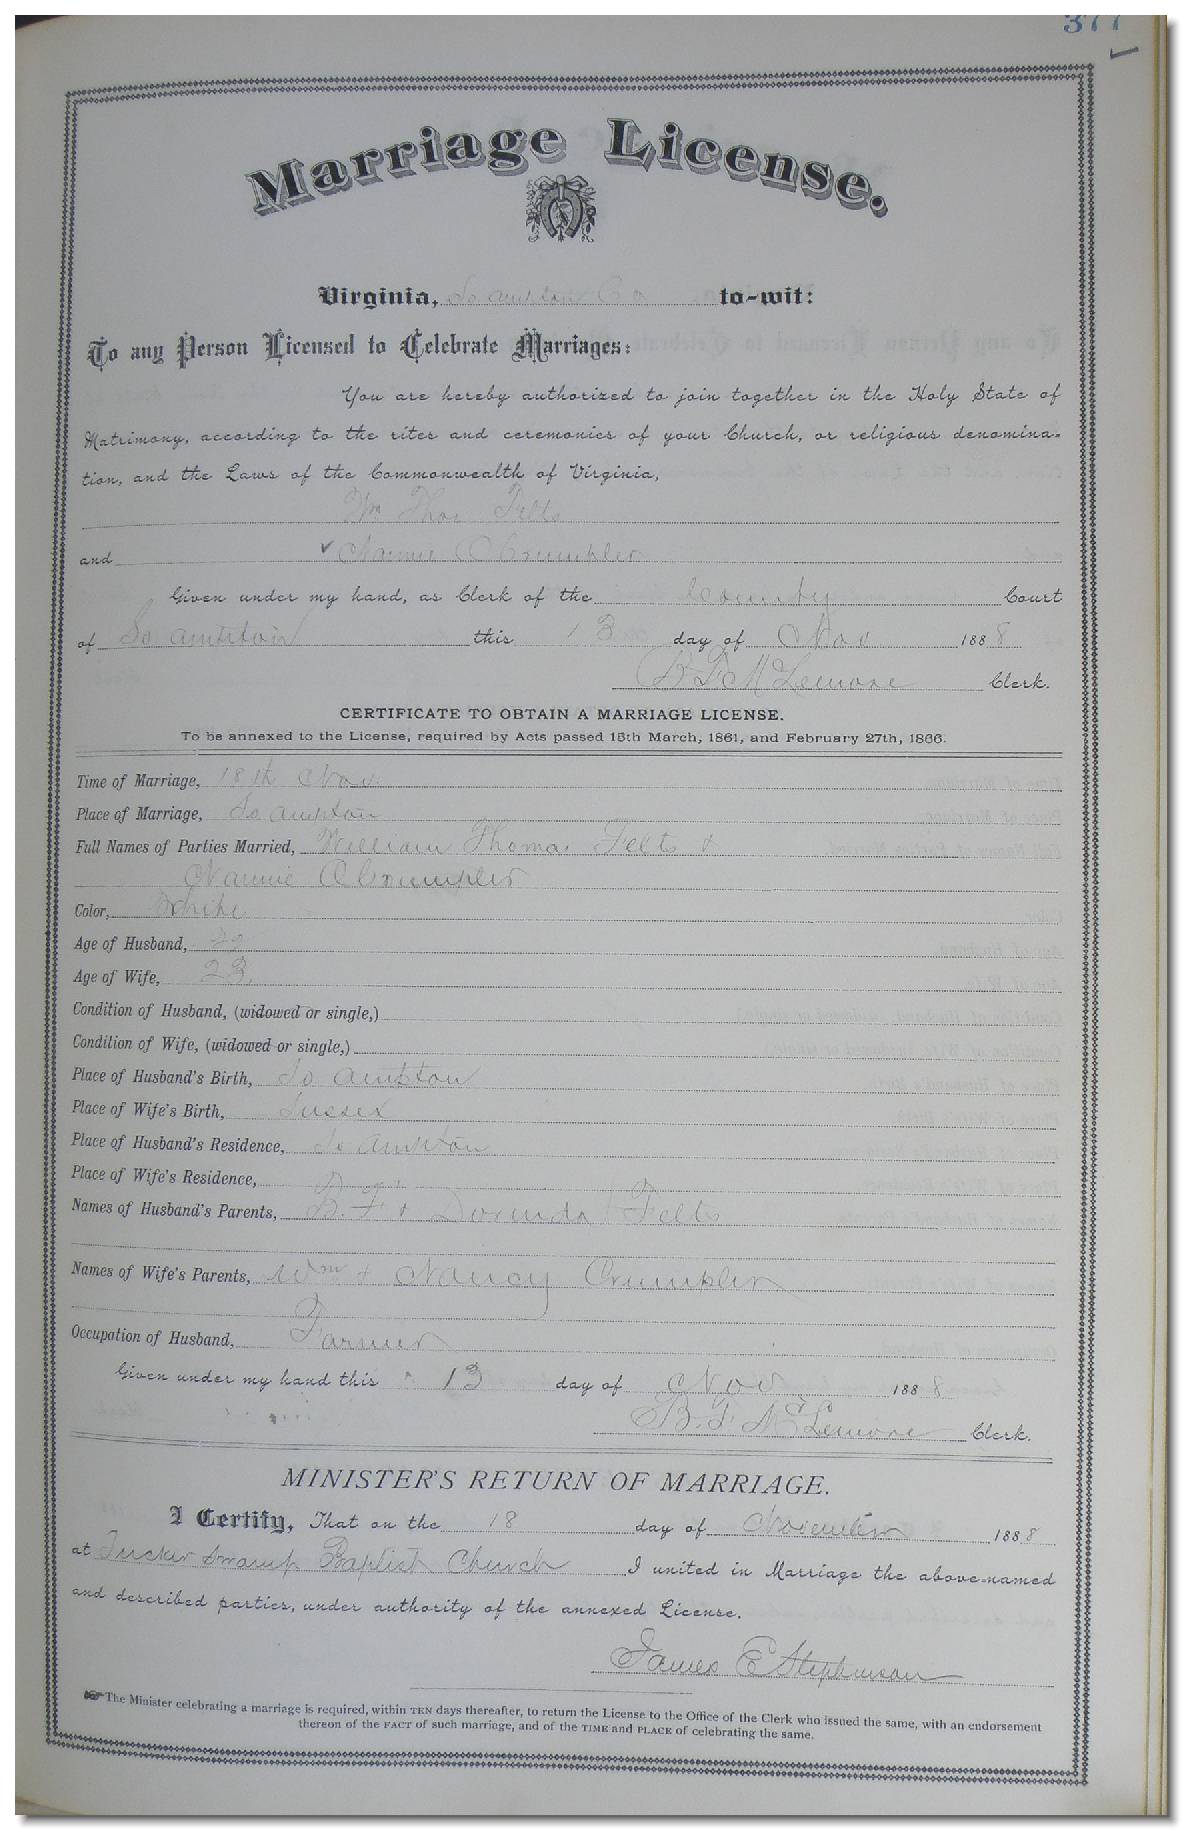 377
Marriage License.
Virginia, So ampton Co to-wit:
To any Person Licensed to Celebrate Marriages:
You are hereby authorized to join together in the Holy State of
Matrimony, according to the rites and ceremonies of your Church, or religious denomina-
tion, and the Laws of the Commonwealth of Virginia,
Wm Thos Felts
and Nannie O Crumpler
Given under my hand, as Clerk of the County Court
of So ampton this 13 day of Nov 1888
B F McLemore Clerk.
CERTIFICATE TO OBTAIN A MARRIAGE LICENSE.
To be annexed to the License, required by Acts passed 15th March, 1861, and February 27th, 1866.
Time of Marriage, 18th Nov
Place of Marriage, So ampton
Full Names of Parties Married, William Thomas Felts &
Nannie O Crumpler
Color, White
Age of Husband,
Age of Wife, 23
Condition of Husband, (widowed or single,)
Condition of Wife, (widowed or single,)
Place of Husband's Birth, So ampton
Place of Wife's Birth, Sussex
Place of Husband's Residence, So ampton
Place of Wife's Residence,
Names of Husband's Parents, B. F. & Dorinda Felts
Names of Wife's Parents, Wm & Nancy Crumpler
Occupation of Husband, Farmer
Given under my hand this 13 day of Nov 1888
B. F. McLemore Clerk.
MINISTER'S RETURN OF MARRIAGE.
I Certify, That on the 18 day of November 1888
at Tucker Swamp Baptist Church I united in Marriage the above-named
and described parties, under authority of the annexed License.
James E Stephenson
The Minister celebrating a marriage is required, within TEN days thereafter, to return the License to the Office of the Clerk who issued the same, with an endorsement
thereon of the FACT of such marriage, and of the TIME and PLACE of celebrating the same.